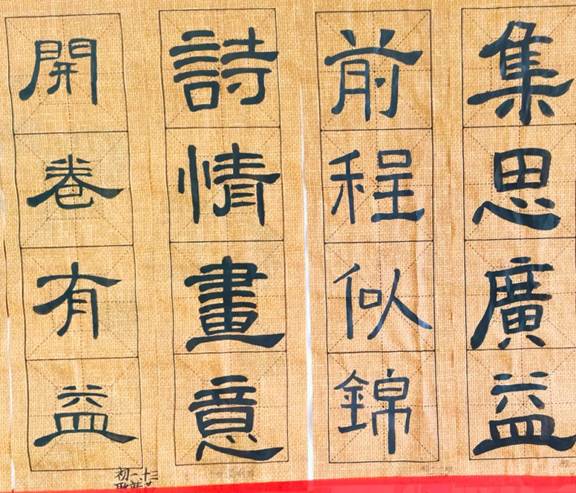 集思廣益
前程似錦
詩情畫意
開卷有益